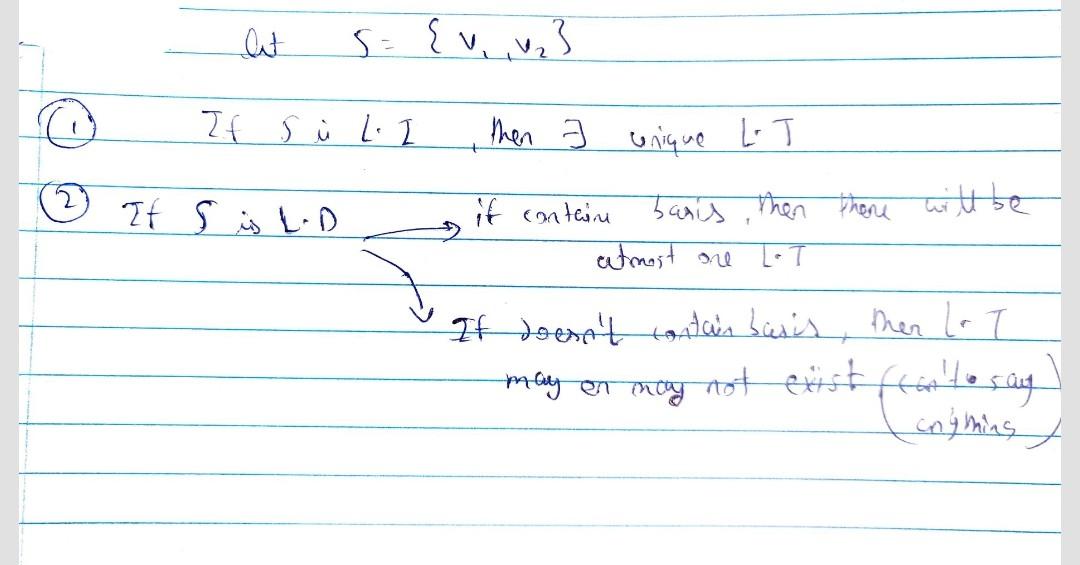 let S = { v₁, v₂ }
① If S is L.I, then ∃ unique L.T
② If S is L.D → if contains basis, then there will be
atmost one L.T
If doesn't contain basis, then L.T
may or may not exist (can't say
anything)